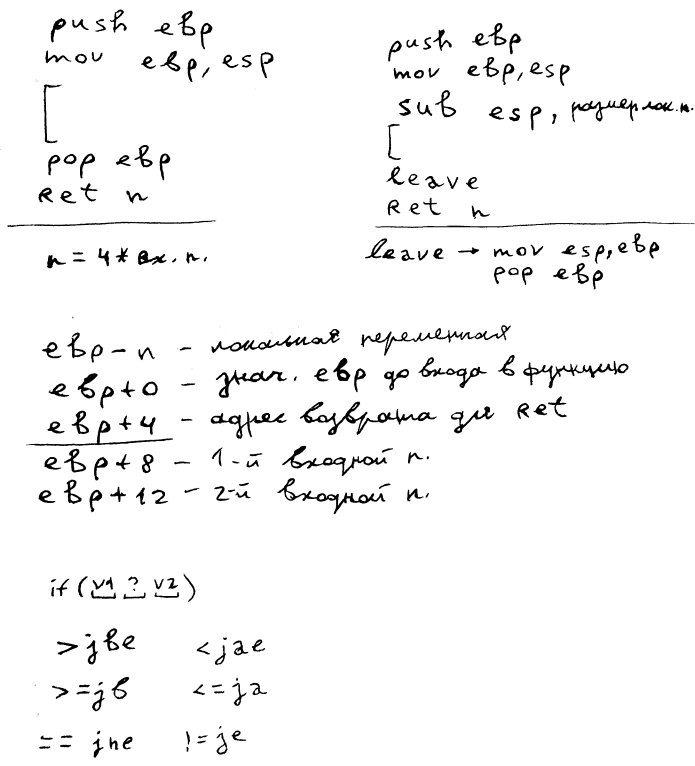 push ebp
mov ebp, esp
[
pop ebp
Ret n
n = 4 * вх. п.
push ebp
mov ebp, esp
sub esp, размер лок. п.
[
leave
Ret n
leave → mov esp, ebp
pop ebp
ebp - n - локальная переменная
ebp + 0 - знач. ebp до входа в функцию
ebp + 4 - адрес возврата для Ret
ebp + 8 - 1-й входной п.
ebp + 12 - 2-й входной п.
if (v1 ? v2)
> jbe < jae
>= jb <= ja
== jne != je